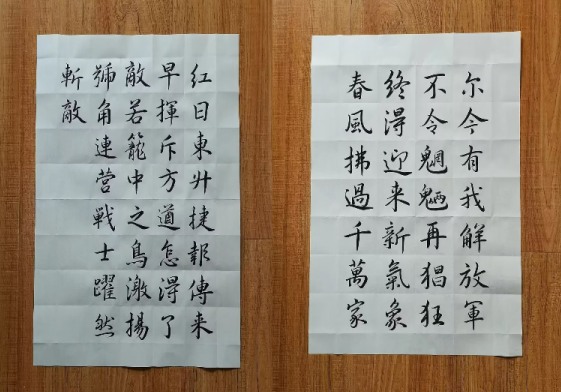 紅日東升捷報傳来
早揮斥方遒怎得了
敵若籠中之鳥激揚
號角連營戰士躍然
斬敵
尔今有我解放軍
不令魍魎再猖狂
終得迎来新氣象
春風拂過千萬家